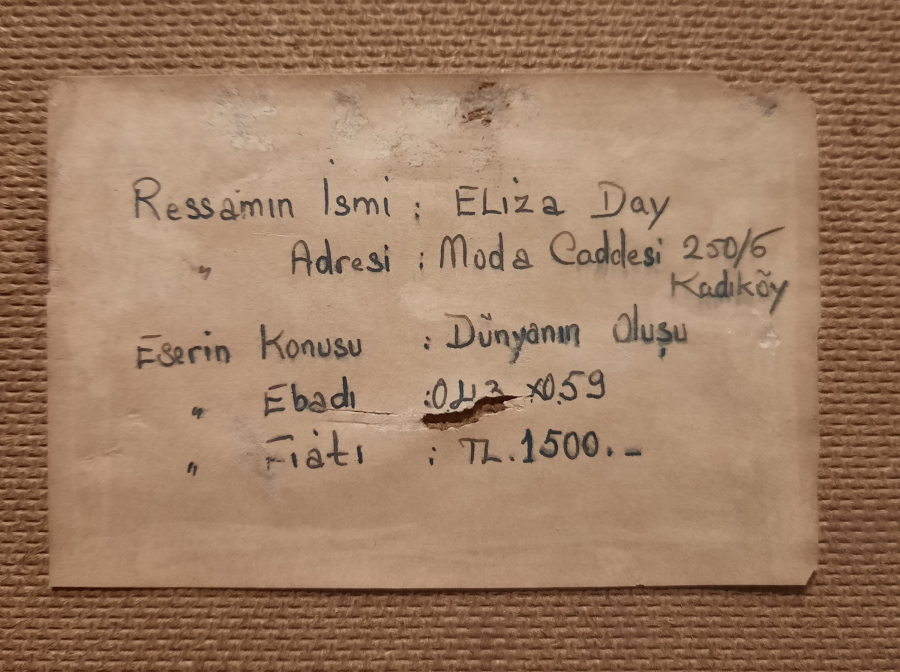 Ressamın İsmi : ELiza Day
" Adresi : Moda Caddesi 250/6
Kadıköy
Eserin Konusu : Dünyanın Oluşu
" Ebadı : x0.59
" Fiatı : TL.1500.-